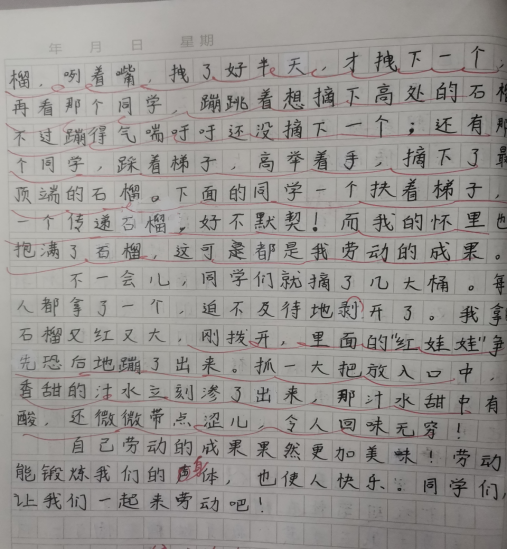 年 月 日 星期
榴，咧着嘴，拽了好半天，才拽下一个，
再看那个同学，蹦跳着想摘下高处的石榴
不过蹦得气喘吁吁还没摘下一个；还有那
个同学，踩着梯子，高举着手，摘下了最
顶端的石榴。下面的同学一个扶着梯子，
一个传递石榴，好不默契！而我的怀里也
抱满了石榴，这可是都是我劳动的成果。
不一会儿，同学们就摘了几大桶。每
人都拿了一个，迫不及待地剥开了。我拿
石榴又红又大，刚拨开，里面的“红娃娃”争
先恐后地蹦了出来。抓一大把放入口中，
香甜的汁水立刻渗了出来，那汁水甜中有
酸，还微微带点涩儿，令人回味无穷！
自己劳动的成果果然更加美味！劳动
能锻炼我们的身体，也使人快乐。同学们，
让我们一起来劳动吧！